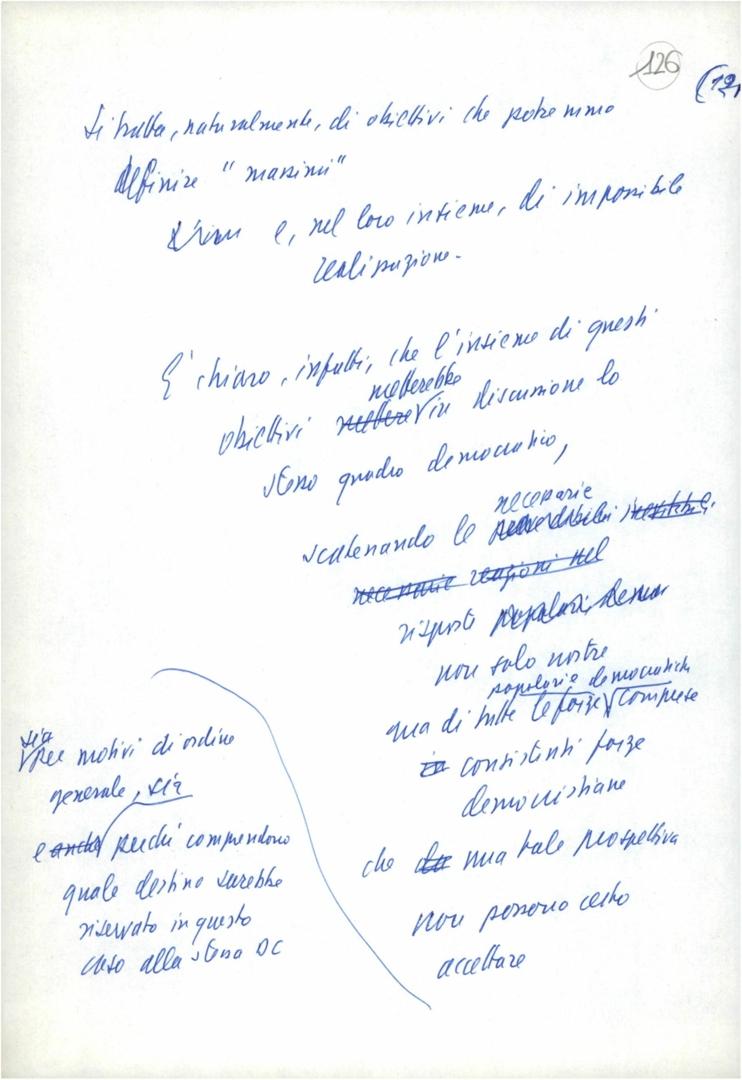 126
(12
Si tratta, naturalmente, di obiettivi che potremmo
definire "massimi"
e, nel loro insieme, di impossibile
realizzazione.
E' chiaro, infatti, che l'insieme di questi
metterebbe
obiettivi mettere in discussione lo
stesso quadro democratico,
necessarie
scatenando le prevedibili inevitabili
necessarie reazioni nel
risposte popolari,
non solo nostre
popolari e democratiche
ma di tutte le forze comprese
in consistenti forze
democristiane
che da una tale prospettiva
non possono certo
accettare
sia
per motivi di ordine
generale, sia
e anche perché comprendono
quale destino sarebbe
riservato in questo
caso alla stessa DC